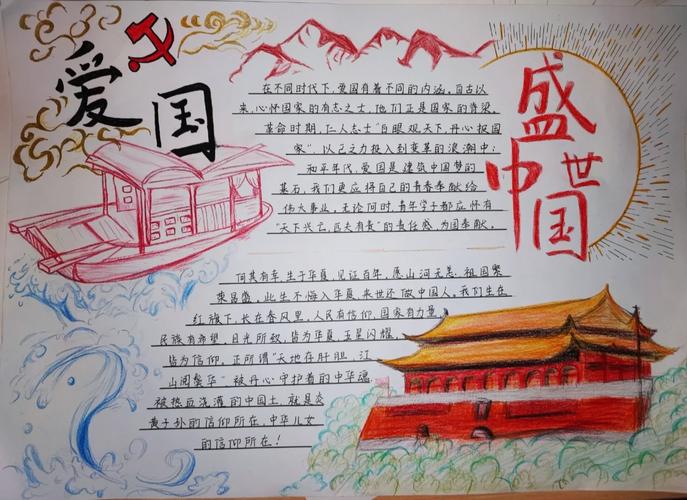 爱国
盛世
中国
在不同时代下，爱国有着不同的内涵。自古以
来，心怀国家的有志之士，他们正是国家的脊梁。
革命时期，仁人志士“白眼观天下，丹心报国
家”，以己之力投入到变革的浪潮中；
和平年代，爱国是建筑中国梦的
基石，我们更应将自己的青春奉献给
伟大事业。无论何时，青年学子都应怀有
“天下兴亡，匹夫有责”的责任感，为国奉献。
何其有幸，生于华夏，见证百年，愿山河无恙，祖国繁
荣昌盛，此生不悔入华夏，来世还做中国人。我们生在
红旗下，长在春风里，人民有信仰，国家有力量，
民族有希望，目光所致，皆为华夏，五星闪耀，
皆为信仰，正所谓“天地存肝胆，江
山阅鬓华”被丹心守护着的中华魂，
被热血浇灌的中国土，就是炎
黄子孙的信仰所在，中华儿女
的信仰所在！